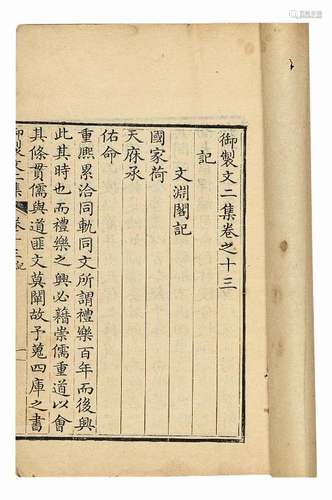 御製文二集卷之十三
記
文淵閣記
國家荷
天庥承
佑命
重熙累洽同軌同文所謂禮樂百年而後興
此其時也而禮樂之興必藉崇儒重道以會
其條貫儒與道匪文莫闡故予蒐四庫之書
御製文二集 卷十三 記 一